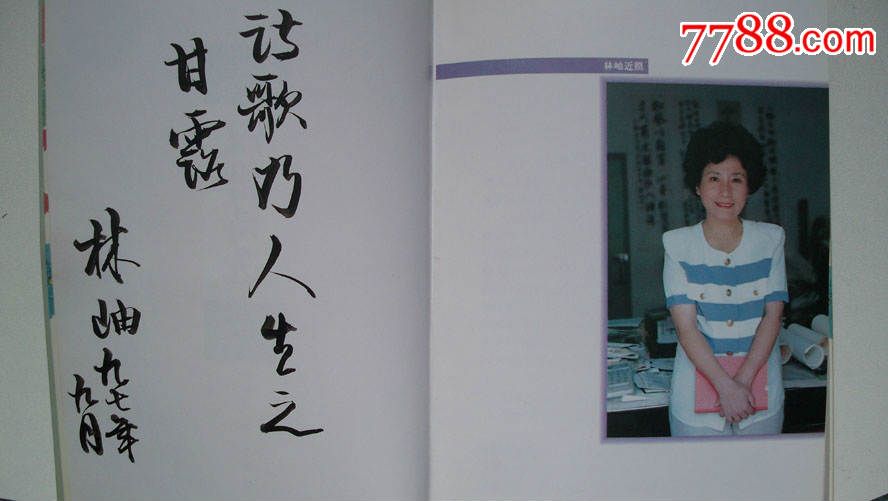 诗歌乃人生之
甘露
林岫九七年
九月
林岫近照
7788.com